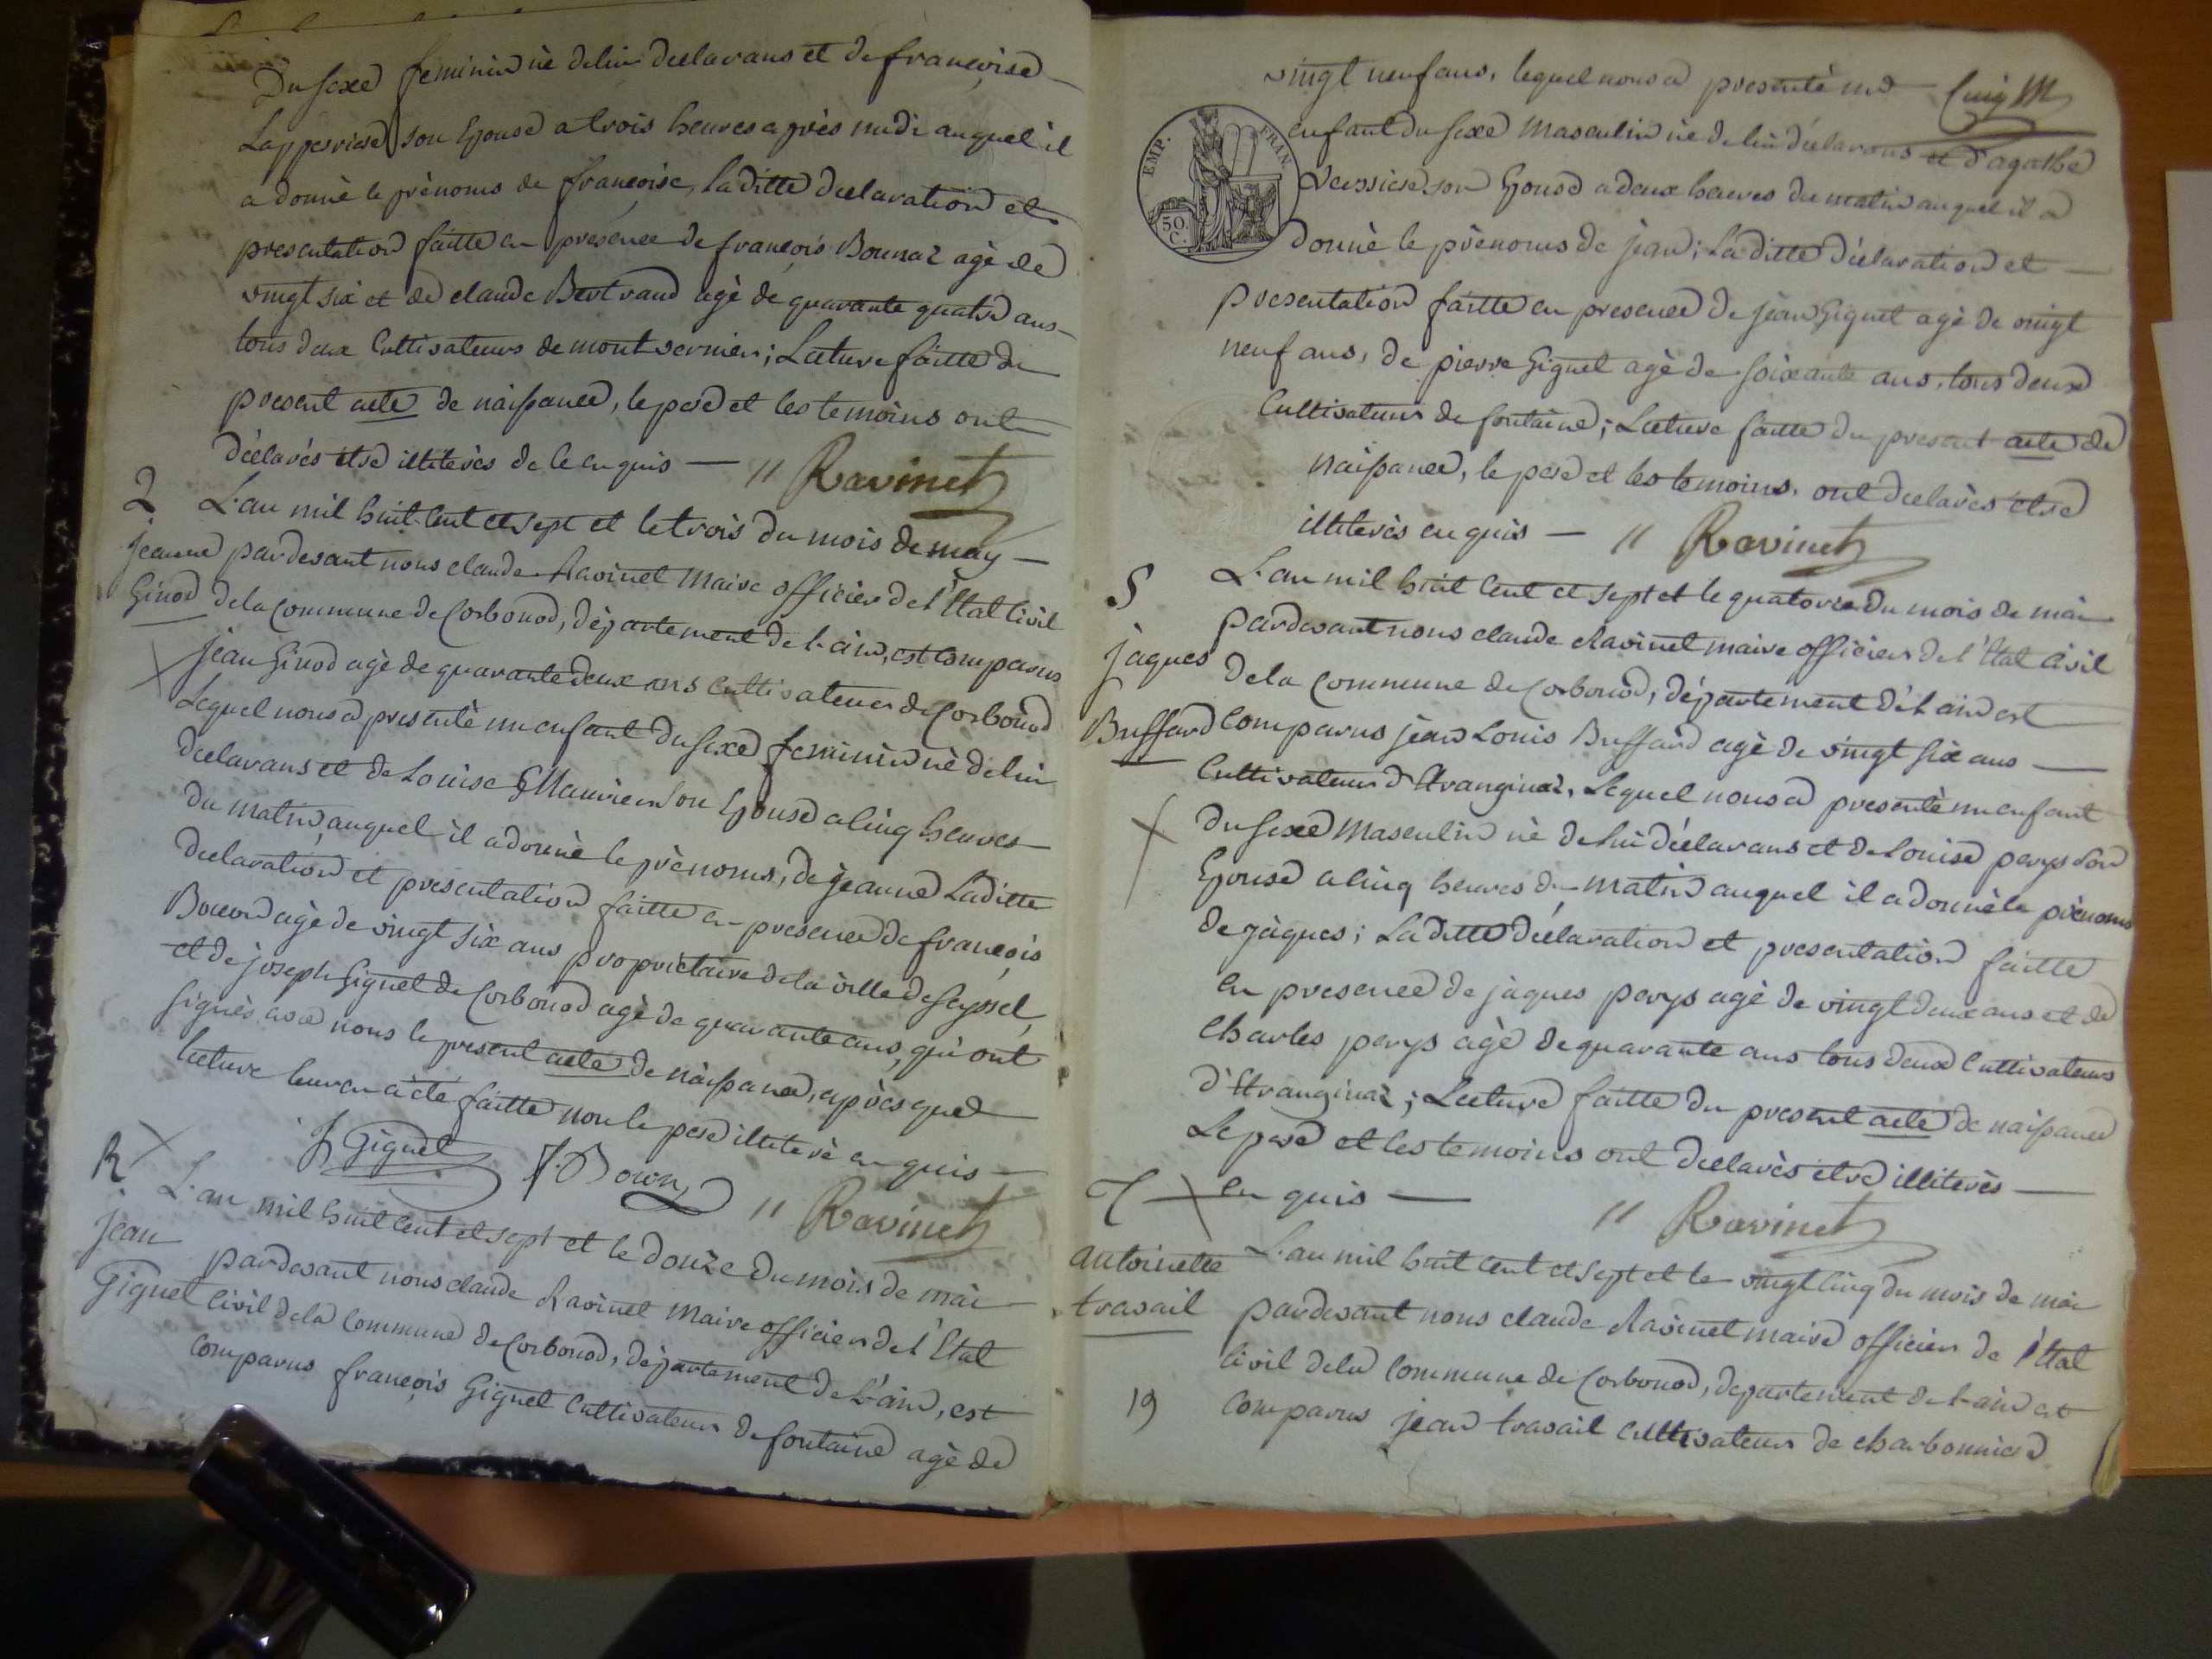 Du sexe feminin nè de lui declarans et de françoise
Lapperiere son Epouse a trois heures après midi auquel il
a donnè le prènoms de françoise, la ditte declaration et
presentation faitte en presence de françois Bonnaz agè de
vingt six et de claude Bertrand agè de quarante quatre ans
tous deux Cultivateurs de montvernier; Lecture faitte du
present acte de naissance, le pere et les temoins ont
dèclarès etre illiterès de ce enquis — // Ravinet
2 L'an mil huit Cent et sept et le trois du mois de may —
jeanne pardevant nous claude Ravinet Maire officier de l'Etat Civil
Ginod de la Commune de Corbonod, dèpartement de l'ain, est Comparus
jean Ginod agè de quarante deux ans Cultivateur de Corbonod
Lequel nous a presentè un enfant du sexe feminin nè de lui
declarans et de Louise son Epouse a Cinq heures
du matin, auquel il a donnè le prènoms, de jeanne La ditte
declaration et presentation faitte en presence de françois
Bocon agè de vingt six ans propriètaire de la ville de seyssel,
et de joseph Giguet de Corbonod agè de quarante ans, qui ont
signès avec nous le present acte de naissance, après que
lecture leur en à etè faitte non le pere illiterè en quis —
J Giguet J. Bocon // Ravinet
R L'an mil huit Cent et sept et le douze du mois de mai
jean pardevant nous claude Ravinet Maire officier de l'Etat
Giguet Civil de la Commune de Corbonod, dèpartement de L'ain, est
Comparus françois Giguet Cultivateur de fontaine agè de
vingt neuf ans, lequel nous a presentè un
EMP. FRAN.
50. C.
enfant du sexe Masculin nè de lui dèclarans et d'agathe
son Epouse a deux heures du matin auquel il a
donnè le prènoms de jean; La ditte dèclaration et —
presentation faitte en presence de jean Giguet agè de vingt
neuf ans, de pierre Giguet agè de soixante ans, tous deux
Cultivateurs de fontaine; Lecture faitte du present acte de
naissance, le pere et les temoins, ont declarès etre
illiterès en quis — // Ravinet
5 L'an mil huit Cent et sept et le quatorze du mois de mai
pardevant nous claude Ravinet maire officier de l'Etat Civil
jaques de la Commune de Corbonod, dèpartement de L'ain est
Buffard Comparus jean Louis Buffard agè de vingt six ans —
Cultivateur d'Etranginaz, Lequel nous a presentè un enfant
du sexe Masculin nè de lui dèclarans et de Louise perys son
Epouse a Cinq heures du matin auquel il a donnè le prènoms
de jaques; La ditte declaration et presentation faitte
en presence de jaques perys agè de vingt deux ans et de
Charles perys agè de quarante ans tous deux Cultivateurs
d'Etranginaz; Lecture faitte du present acte de naissance
Le pere et les temoins ont declarès etre illiterès —
en quis — // Ravinet
antoinette L'an mil huit Cent et sept et le vingt Cinq du mois de mai
travail pardevant nous claude Ravinet maire officier de l'Etat
Civil de la Commune de Corbonod, departement de l'ain est
19 Comparus jean travail Cultivateur de charbonniere